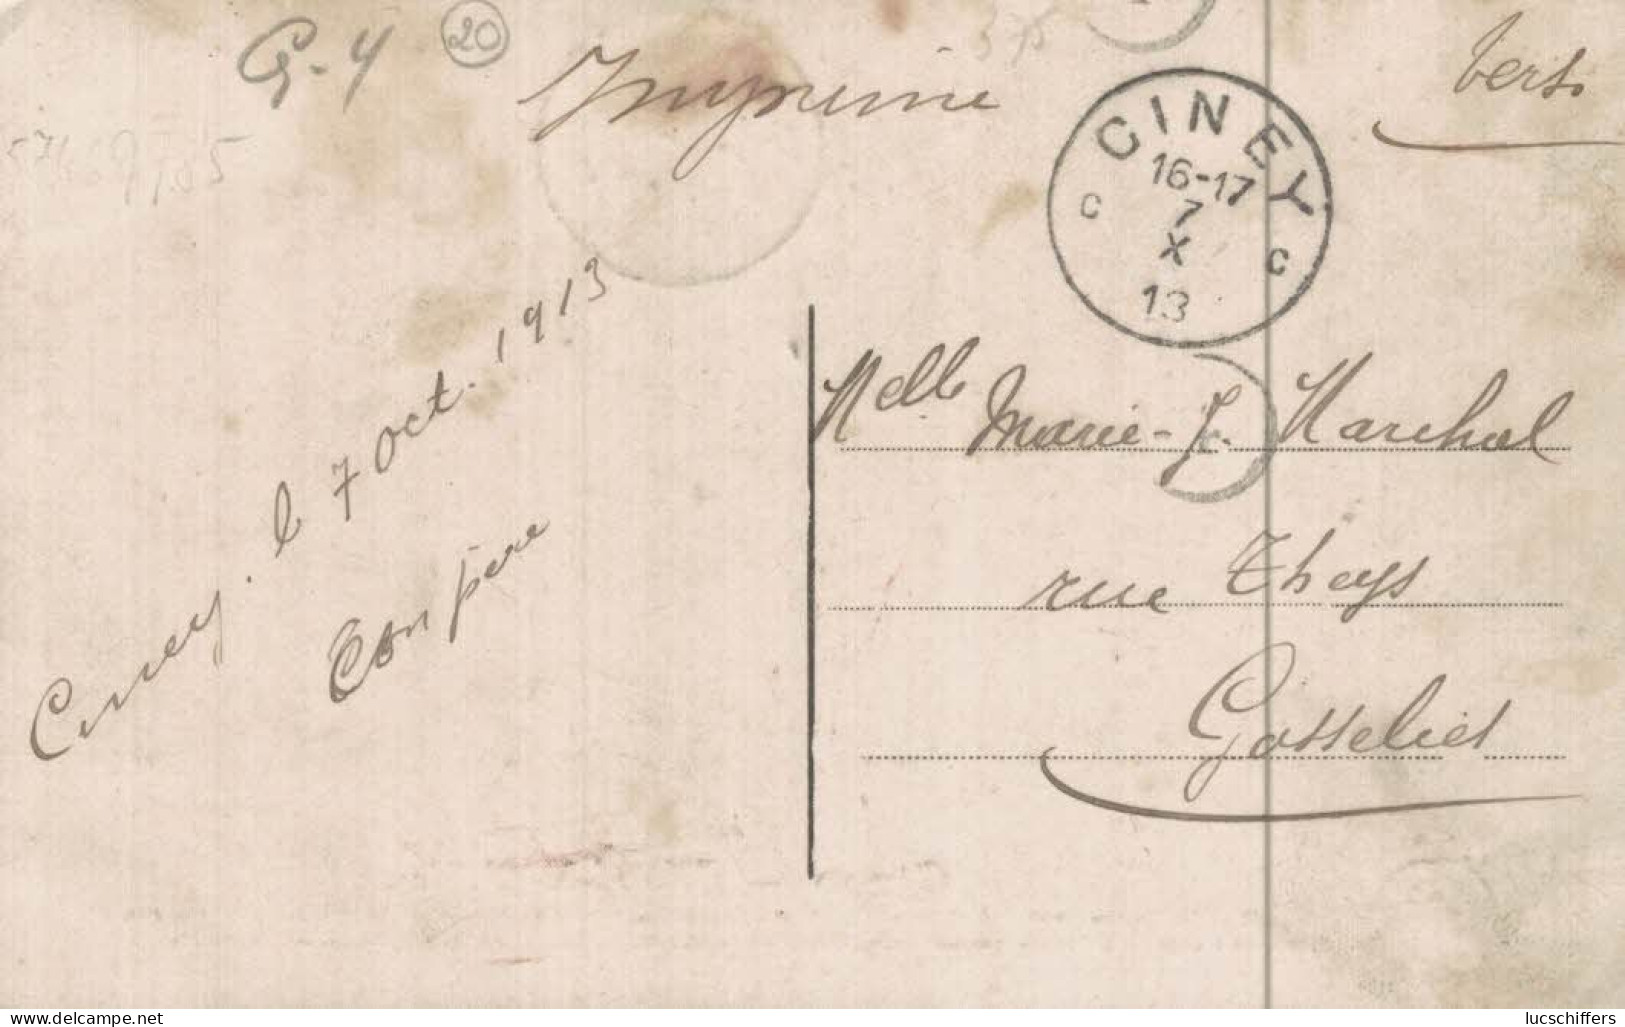 G-4 20
Imprimé
Vers.
CINEY
16-17
7
X
13
C C
Ciney. le 7 oct. 1913
Ton père
Melle Marie-J. Marchal
rue Theys
Gosselies
www.delcampe.net
lucschiffers